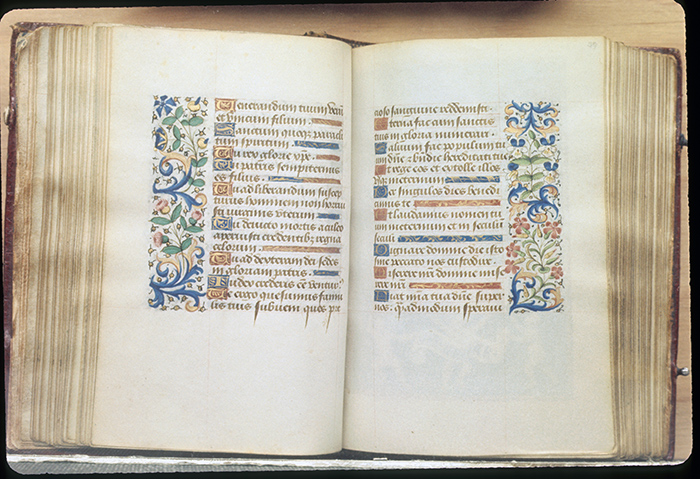 Venerandum tuum verū
et vnicum filium.
Sanctum quoqz paracli
tum spiritum.
Tu rex glorie xpe.
Tu patris sempiternus
es filius.
Tu ad liberandum suscep
turus hominem non horrui
sti virginis vterum
Tu devicto mortis aculeo
aperuisti credentibz regna
celorum
Tu ad dexteram dei sedes
in gloriam patris.
Iudex crederis eē ventur9
Te ergo quesumus famu
lis tuis subueni quos pre
cioso sanguine redemisti
Eterna fac cum sanctis
tuis in gloria numerari.
Saluum fac populum tuū
dn̄e: et bn̄dic hereditati tue
Et rege eos et extolle illos
in eternum
Per singulos dies benedi
cimus te
Et laudamus nomen tuū
in eternum et in seculum
seculi
Dignare domine die isto
sine peccato nos custodire
Miserere nr̄i domine mise
rere nr̄i
Fiat mīa tua dn̄e super
nos: q̄admodum sperauim9